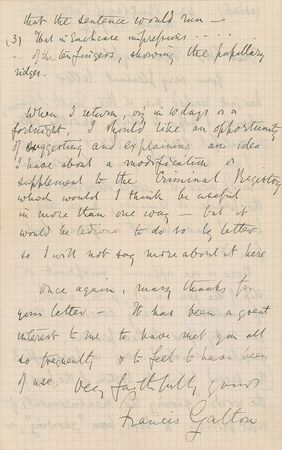 that the sentence would run —
(3) That in each case impressions . . . . .
. . of the ten fingers, showing the papillary
ridges.
When I return, viz in 10 days or a
fortnight, I should like an opportunity
of suggesting and explaining an idea
I have about a modification or
supplement to the Criminal Registry
which would I think be useful
in more than one way — but it
would be tedious to do so by letter
so I will not say more about it here
Once again, many thanks for
your letter. — It has been a great
interest to me to have met you all
so frequently & to feel to have been
of use. Very faithfully yours
Francis Galton